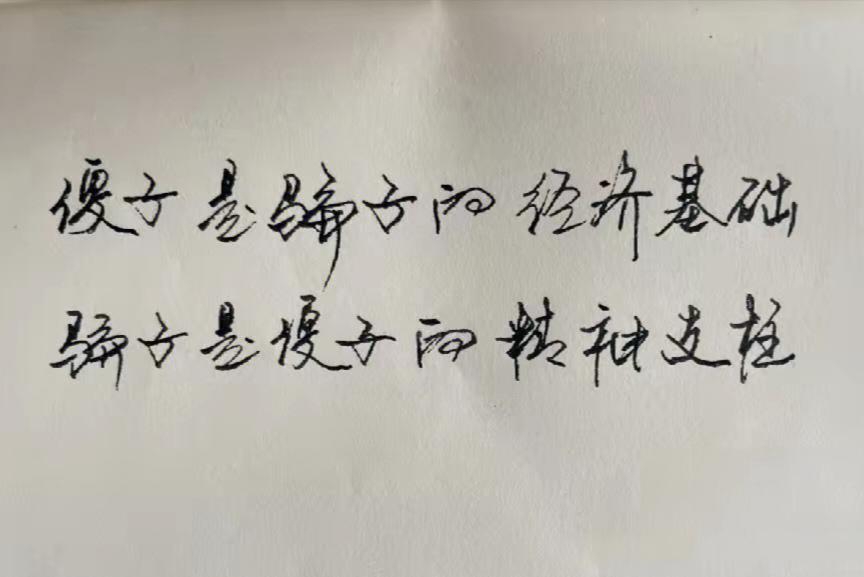 傻子是骗子的经济基础
骗子是傻子的精神支柱